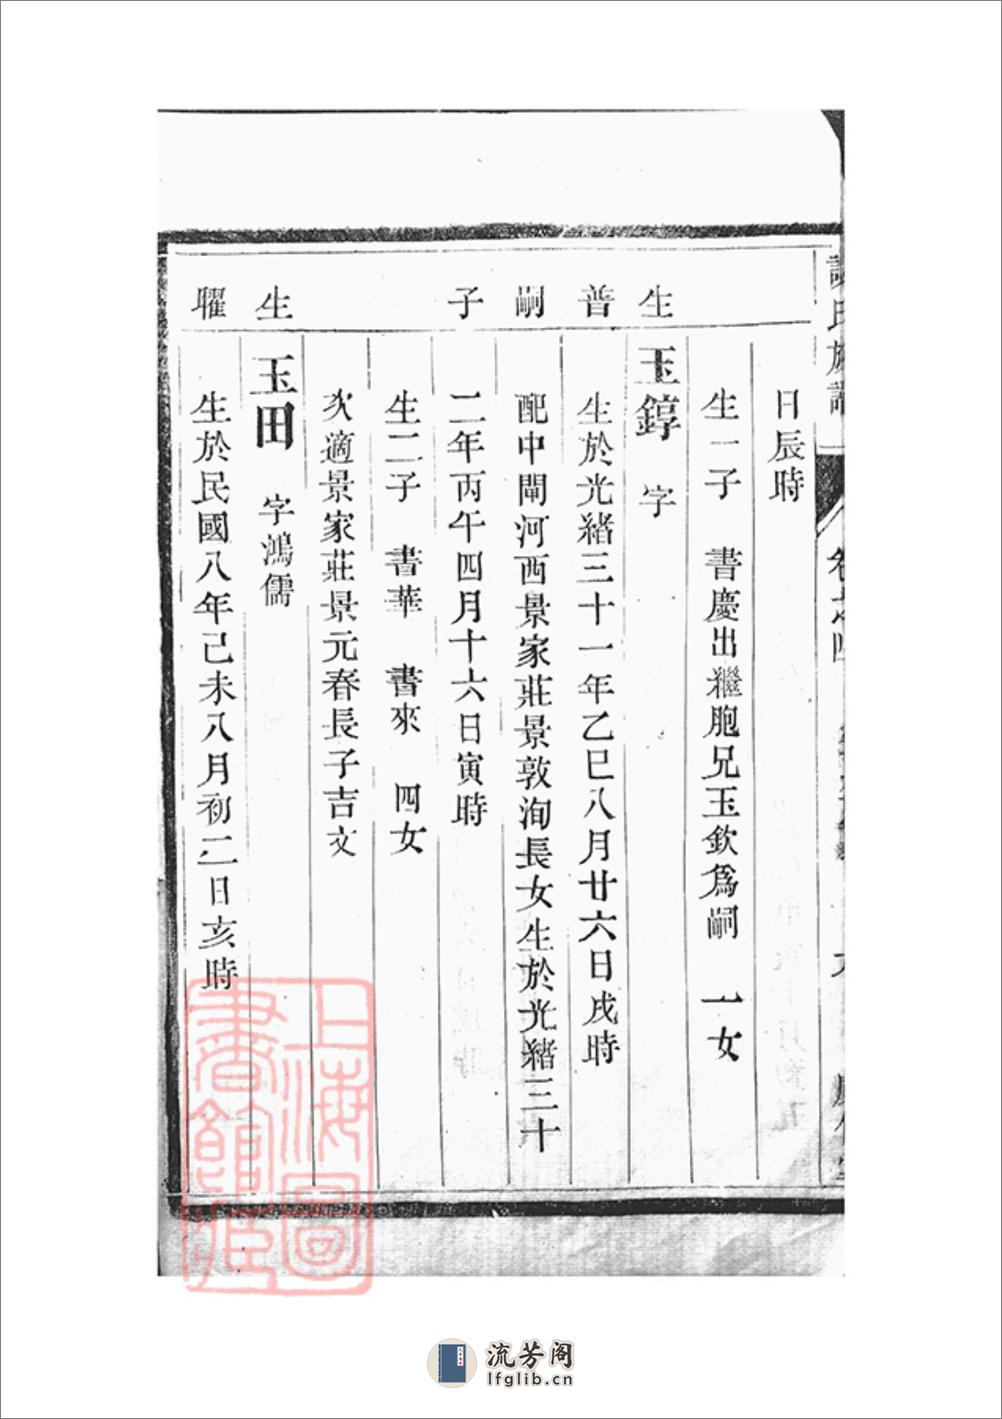 氏族譜
日辰時
生一子 書慶出繼胞兄玉欽爲嗣 一女
生 玉錞 字
普 生於光緒三十一年乙巳八月廿六日戌時
嗣 配中閘河西景家莊景敦洵長女生於光緒三十
子 二年丙午四月十六日寅時
生二子 書華 書來 四女
次適景家莊景元春長子吉文
生 玉田 字鴻儒
耀 生於民國八年己未八月初二日亥時
上海圖
書館藏
流芳阁
lfglib.cn